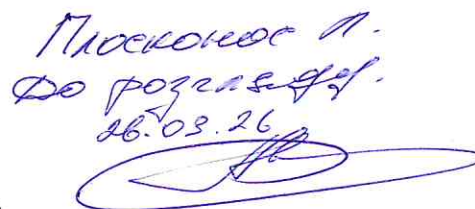 Плосконос Л.
До розгляду.
26.03.26